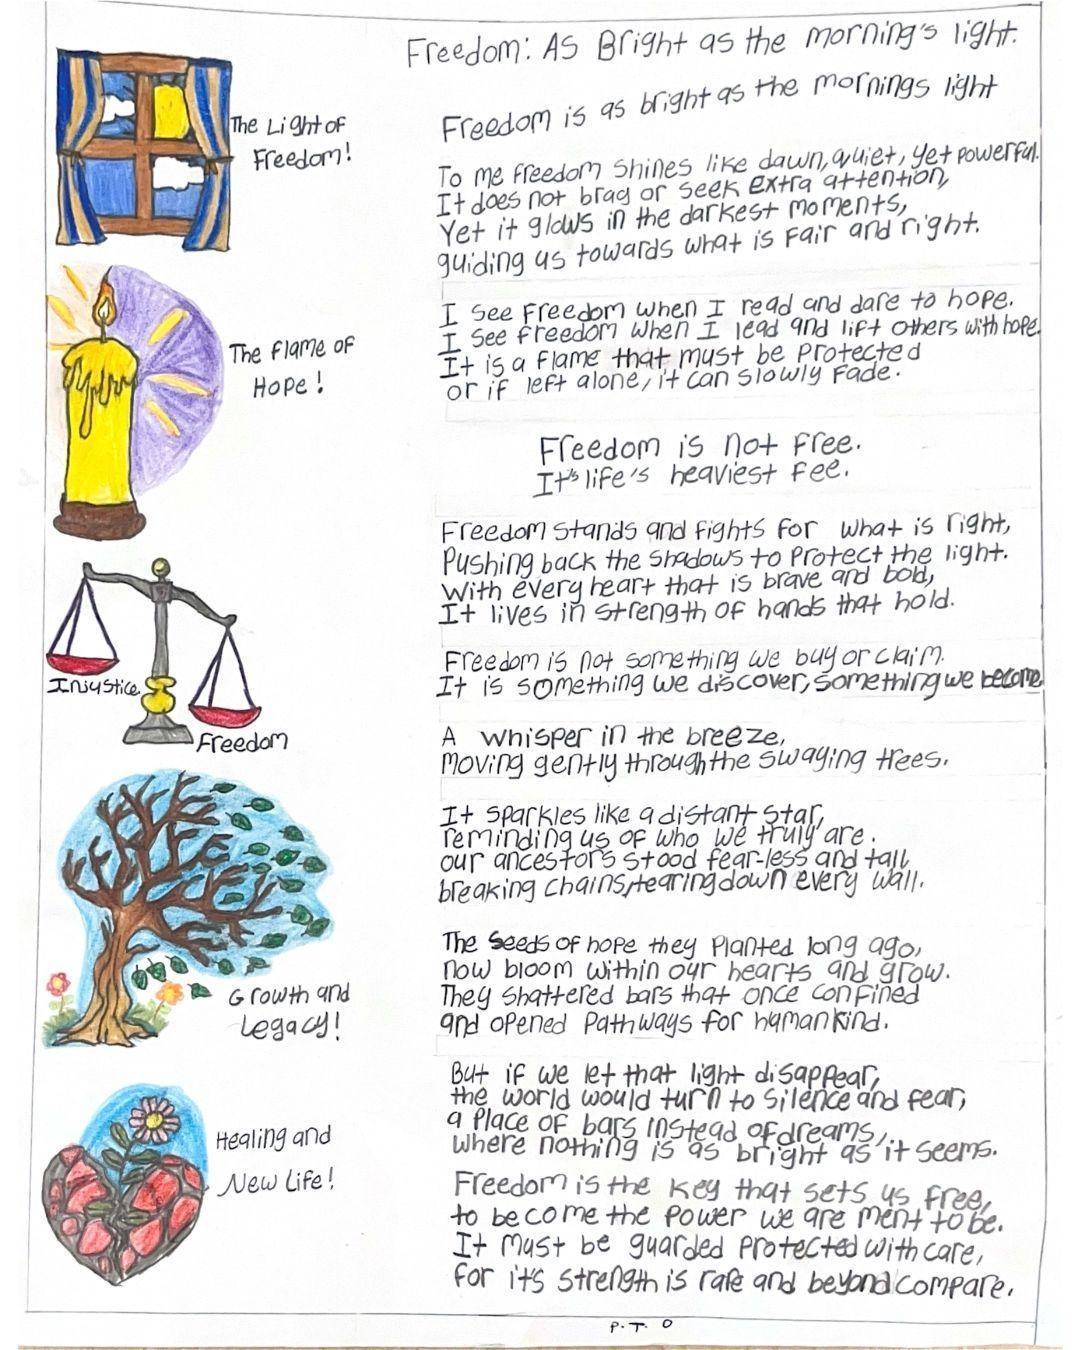 Freedom: As Bright as the morning's light.
Freedom is as bright as the mornings light
The Light of
Freedom!
To me freedom shines like dawn, quiet, yet powerful.
It does not brag or seek extra attention,
Yet it glows in the darkest moments,
guiding us towards what is fair and right.
I see freedom when I read and dare to hope.
I see freedom when I lead and lift others with hope.
It is a flame that must be protected
or if left alone, it can slowly fade.
The flame of
Hope!
Freedom is not free.
It's life's heaviest fee.
Freedom stands and fights for what is right,
Pushing back the shadows to protect the light.
With every heart that is brave and bold,
It lives in strength of hands that hold.
Injustice
Freedom
Freedom is not something we buy or claim.
It is something we discover, something we become.
A whisper in the breeze,
Moving gently through the swaying trees.
It sparkles like a distant star,
reminding us of who we truly are.
our ancestors stood fear-less and tall,
breaking chains, tearing down every wall.
The seeds of hope they planted long ago,
now bloom within our hearts and grow.
They shattered bars that once confined
and opened pathways for humankind.
Growth and
Legacy!
But if we let that light disappear,
the world would turn to silence and fear,
a place of bars instead of dreams,
where nothing is as bright as it seems.
Healing and
New Life!
Freedom is the key that sets us free,
to become the power we are ment to be.
It must be guarded protected with care,
for it's strength is rare and beyond compare.
P.T.O